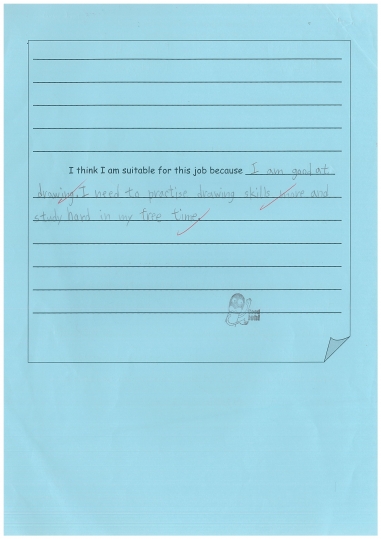 I think I am suitable for this job because I am good at
drawing. I need to practise drawing skills more and
study hard in my free time.